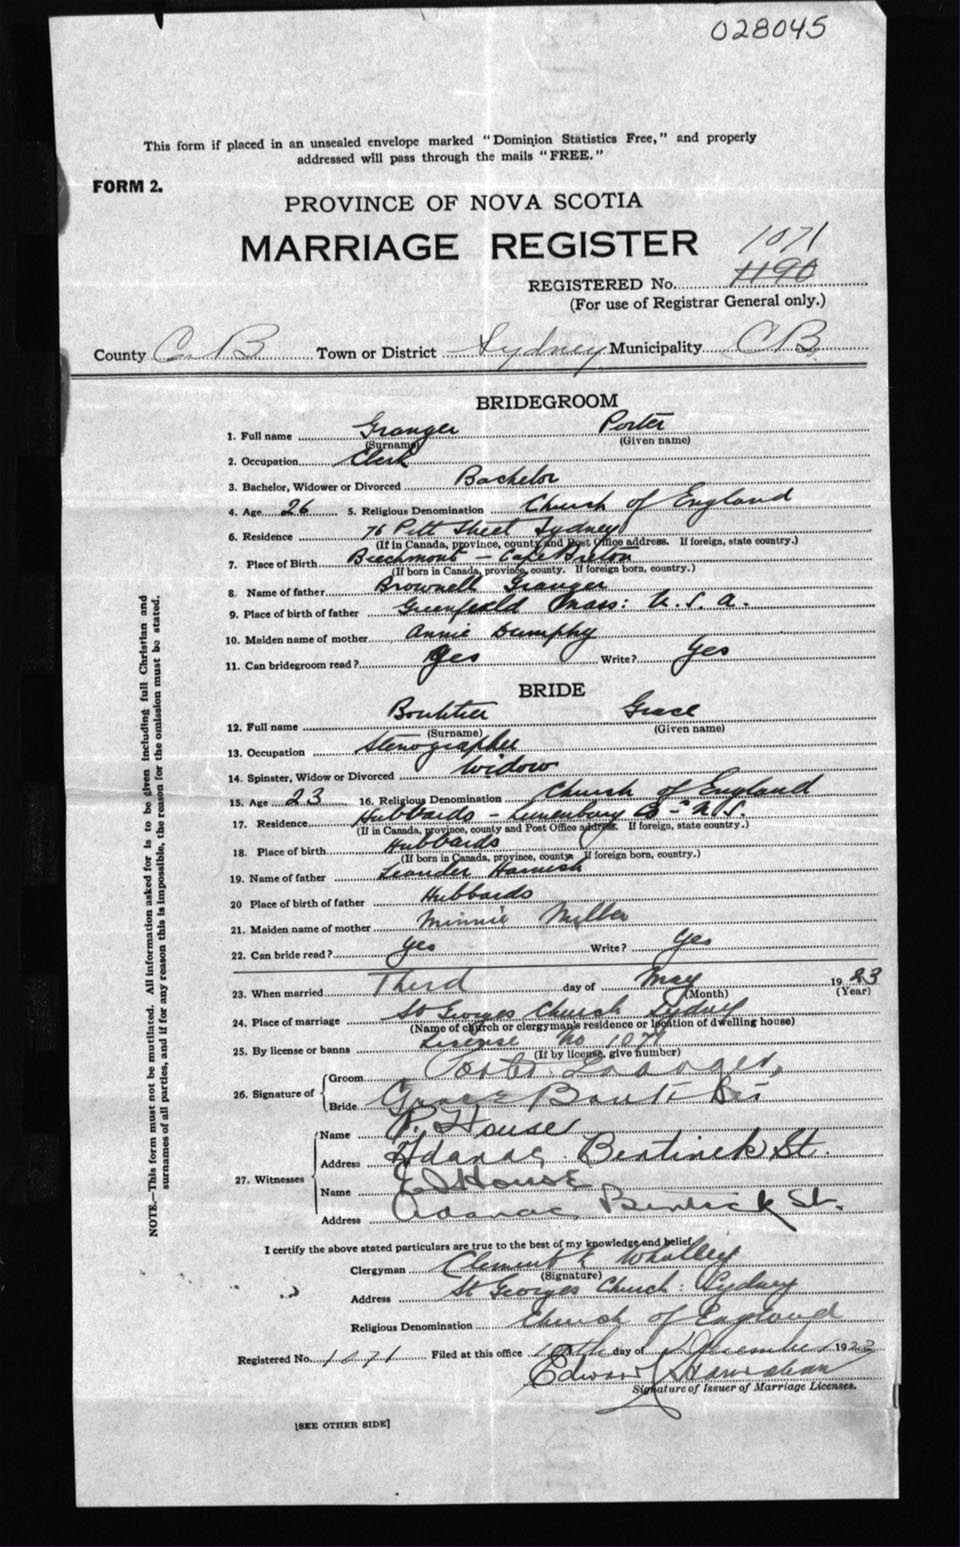 028045
This form if placed in an unsealed envelope marked "Dominion Statistics Free," and properly
addressed will pass through the mails "FREE."
FORM 2.
PROVINCE OF NOVA SCOTIA
MARRIAGE REGISTER
1071
REGISTERED No. 1190
(For use of Registrar General only.)
County C. B Town or District Sydney Municipality C B.
BRIDEGROOM
1. Full name Granger Porter
(Surname) (Given name)
2. Occupation Clerk
3. Bachelor, Widower or Divorced Bachelor
4. Age 26 5. Religious Denomination Church of England
6. Residence 76 Pitt Street Sydney
(If in Canada, province, county and Post Office address. If foreign, state country.)
7. Place of Birth Beechmont - Cape Breton
(If born in Canada, province, county. If foreign born, country.)
8. Name of father Brownell Granger
9. Place of birth of father Greenfield Mass: U. S. A.
10. Maiden name of mother Annie Dumphy
11. Can bridegroom read? Yes Write? Yes
BRIDE
12. Full name Boutilier Grace
(Surname) (Given name)
13. Occupation Stenographer
14. Spinster, Widow or Divorced Widow
15. Age 23 16. Religious Denomination Church of England
17. Residence Hubbards - Lunenburg Co - N.S.
(If in Canada, province, county and Post Office address. If foreign, state country.)
18. Place of birth Hubbards
(If born in Canada, province, county. If foreign born, country.)
19. Name of father Leander Harnish
20 Place of birth of father Hubbards
21. Maiden name of mother Minnie Miller
22. Can bride read? Yes Write? Yes
23. When married Third day of May 1923
(Month) (Year)
24. Place of marriage St Georges Church Sydney
(Name of church or clergyman's residence or location of dwelling house)
25. By license or banns License No 1071
(If by license, give number)
26. Signature of Groom Porter Granger
Bride Grace Boutilier
27. Witnesses Name House
Address Adanac Bentinck St.
Name House
Address Adanac Bentinck St.
I certify the above stated particulars are true to the best of my knowledge and belief
Clergyman Clement Whalley
(Signature)
Address St Georges Church: Sydney
Religious Denomination Church of England
Registered No. 1071 Filed at this office day of 1923
Edward
Signature of Issuer of Marriage Licenses.
[SEE OTHER SIDE]
NOTE.—This form must not be mutilated. All information asked for is to be given including full Christian and
surnames of all parties, and if for any reason this is impossible, the reason for the omission must be stated.